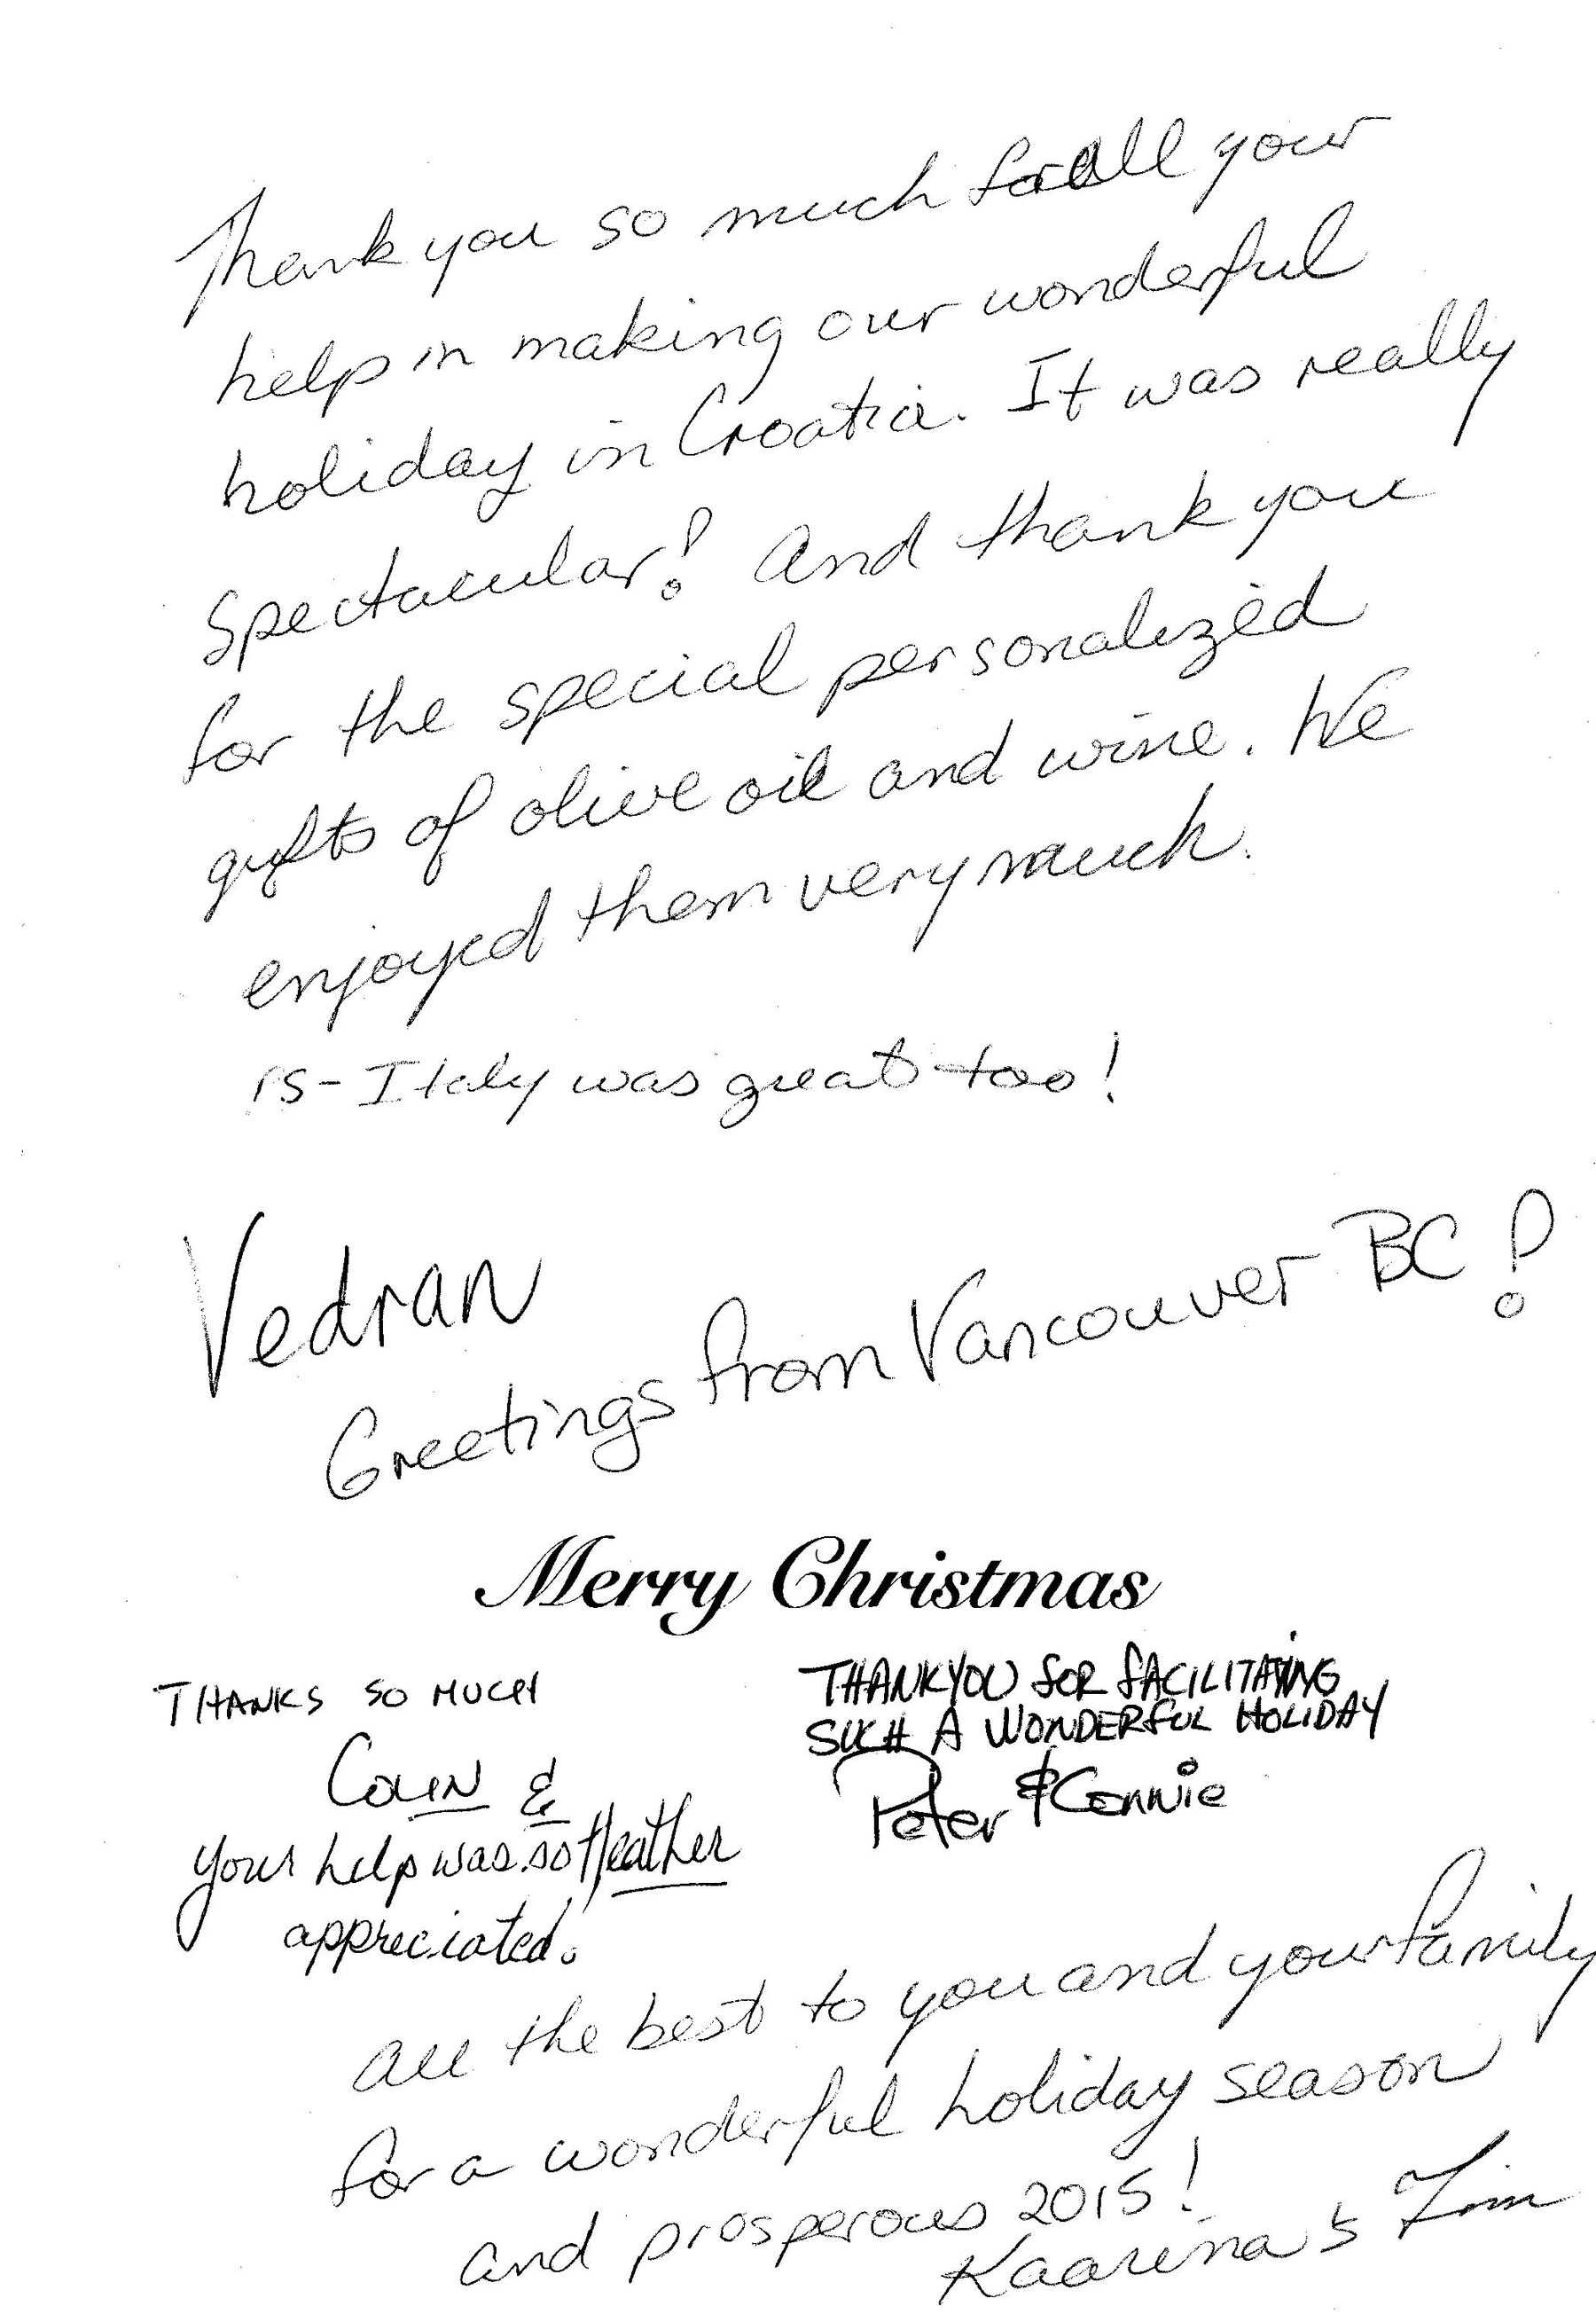 Thank you so much for all your
help in making our wonderful
holiday in Croatia. It was really
Spectacular! And thank you
for the special personalized
gifts of olive oil and wine. We
enjoyed them very much.
PS - Italy was great too!
Vedran
Greetings from Vancouver BC!
Merry Christmas
THANKS SO MUCH
COLIN &
Heather
Your help was so
appreciated!
THANKYOU FOR FACILITATING
SUCH A WONDERFUL HOLIDAY
Peter & Connie
All the best to you and your family
for a wonderful holiday season
and prosperous 2015!
Kaarina & Tim